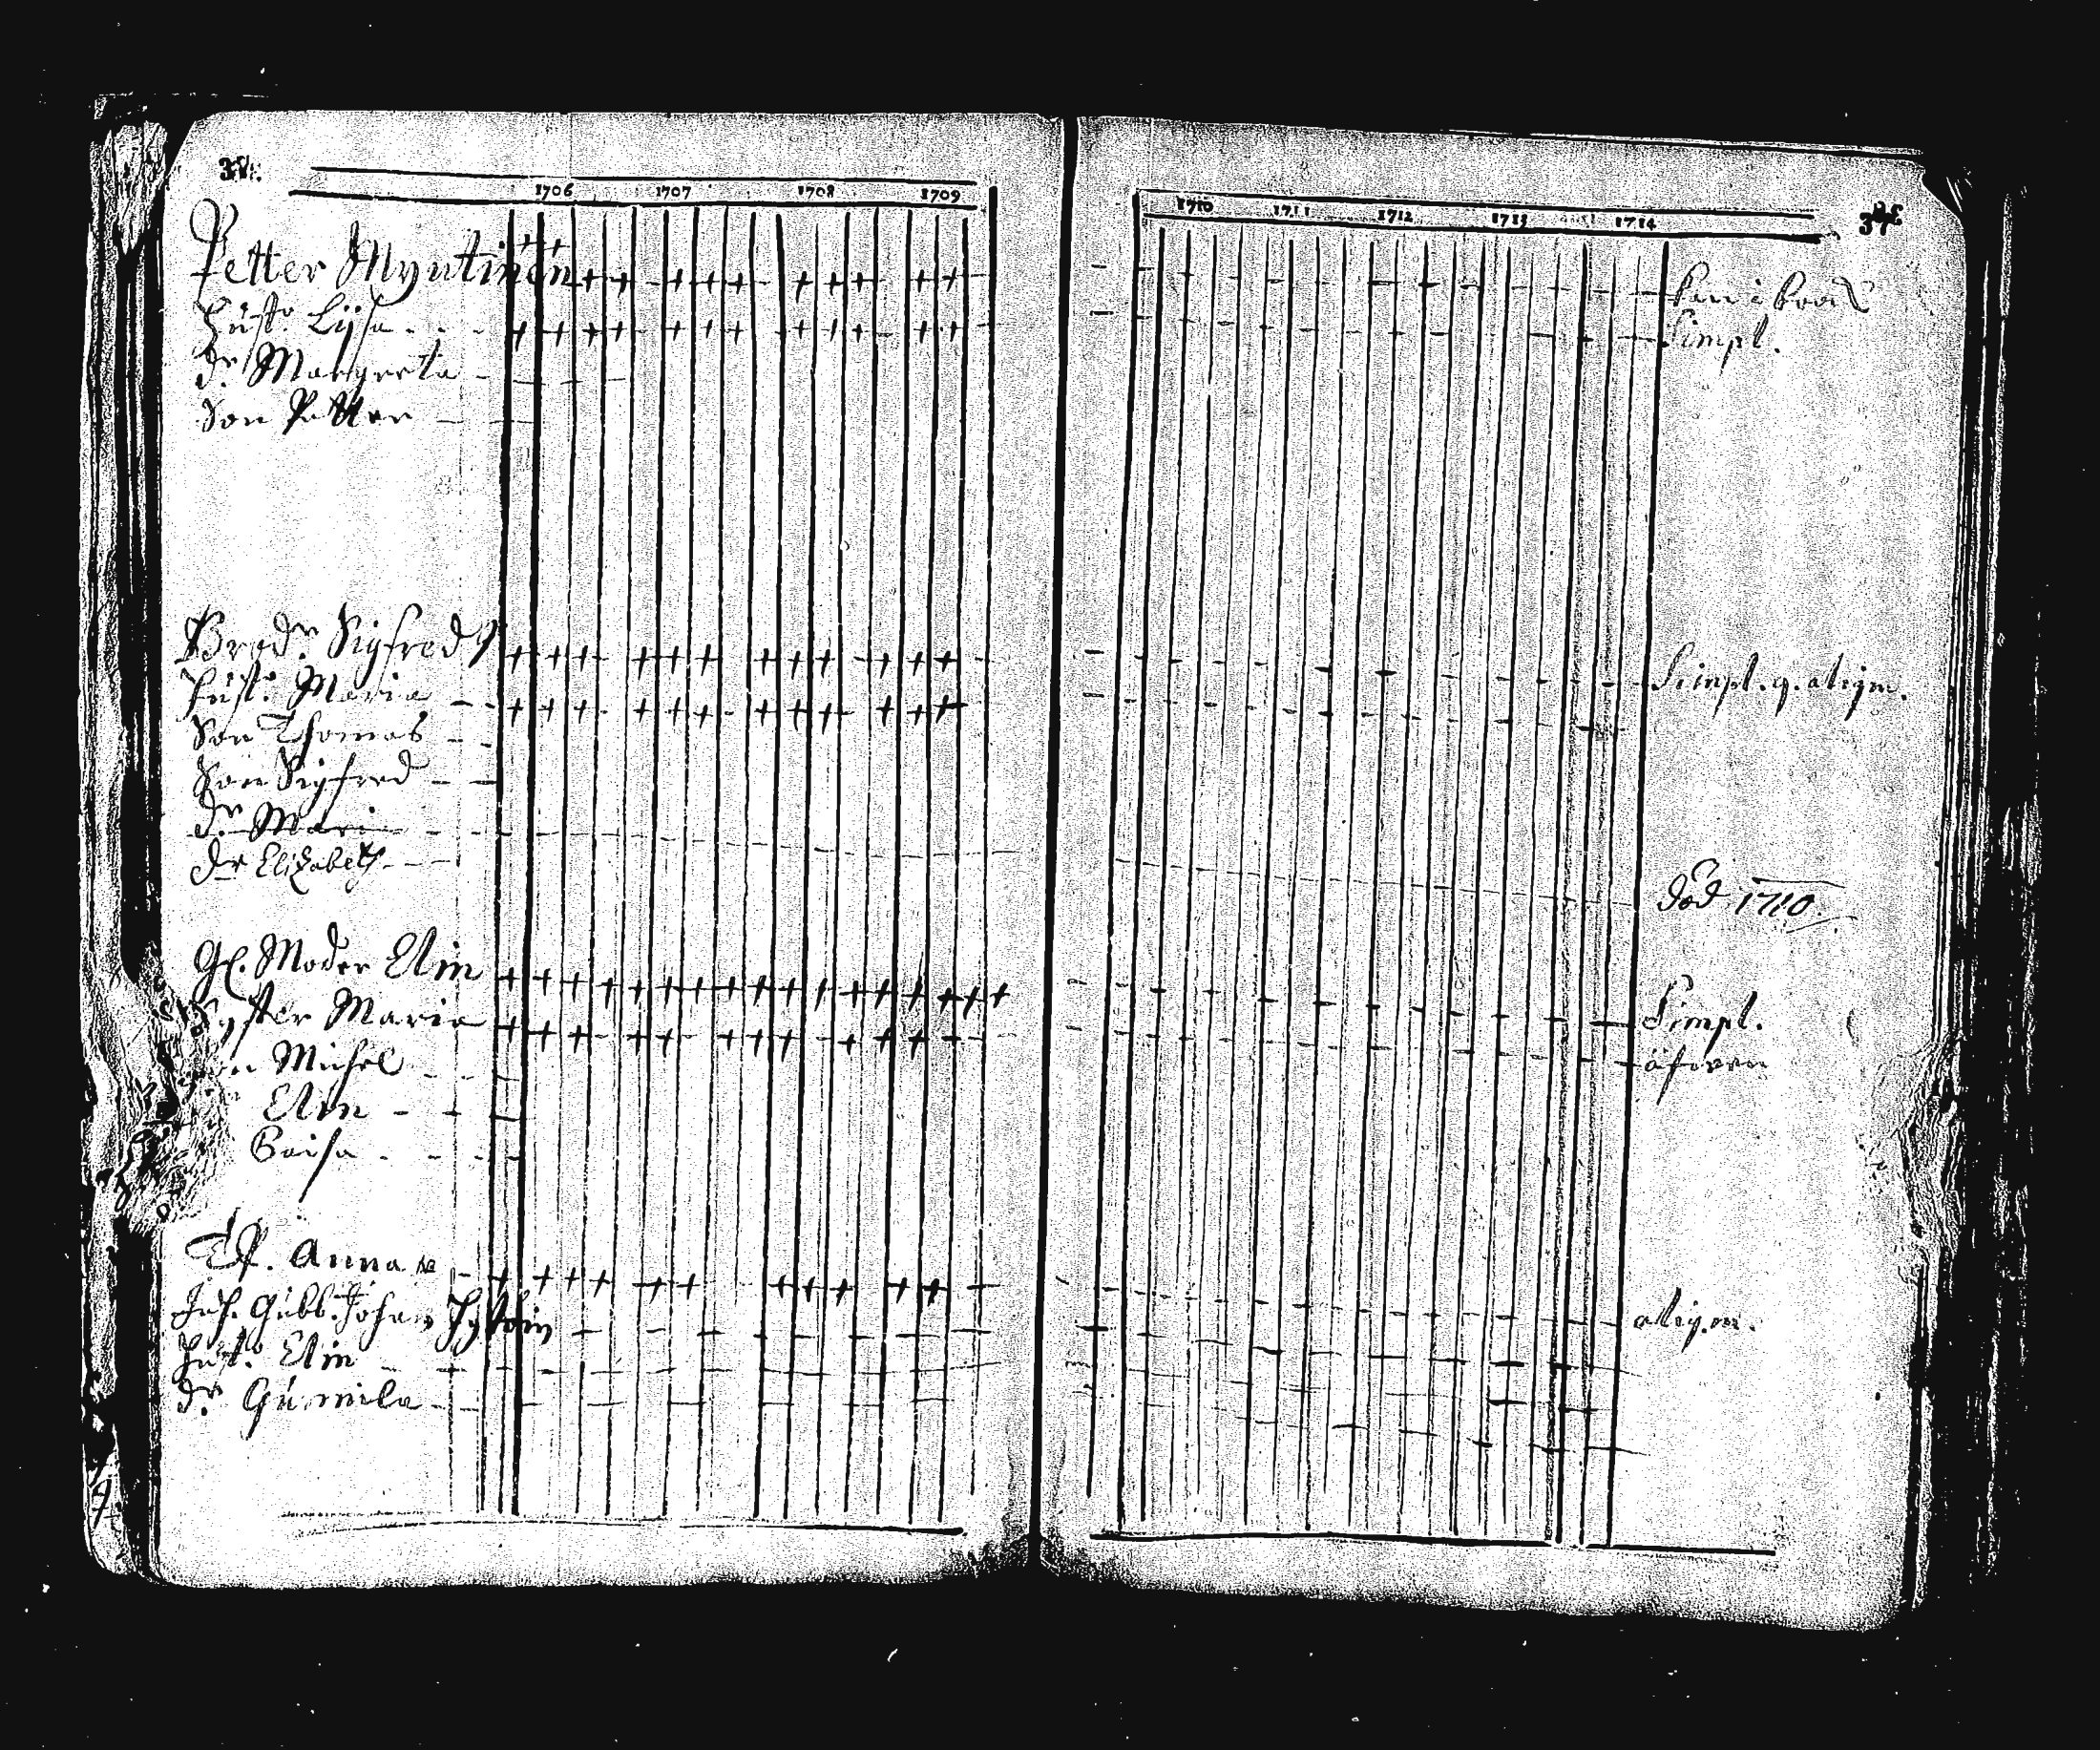 1706 1707 1708 1709
Petter Myntinen
Hust: Lijsa
dr: Margreta
Son Petter
Brodr: Sigfred
Hust: Maria
Son Thomas
Son Sigfred
dr: Mari
dr Elizabeth
Gl. Moder Elin
Syster Maria
Michel
Elin
Caisa
Anna
Inh. Gubb. Johan
Hust: Elin
dr: Gunnila
1710 1711 1712 1713 1714
Simpl.
Simpl.
död 1710
Simpl.